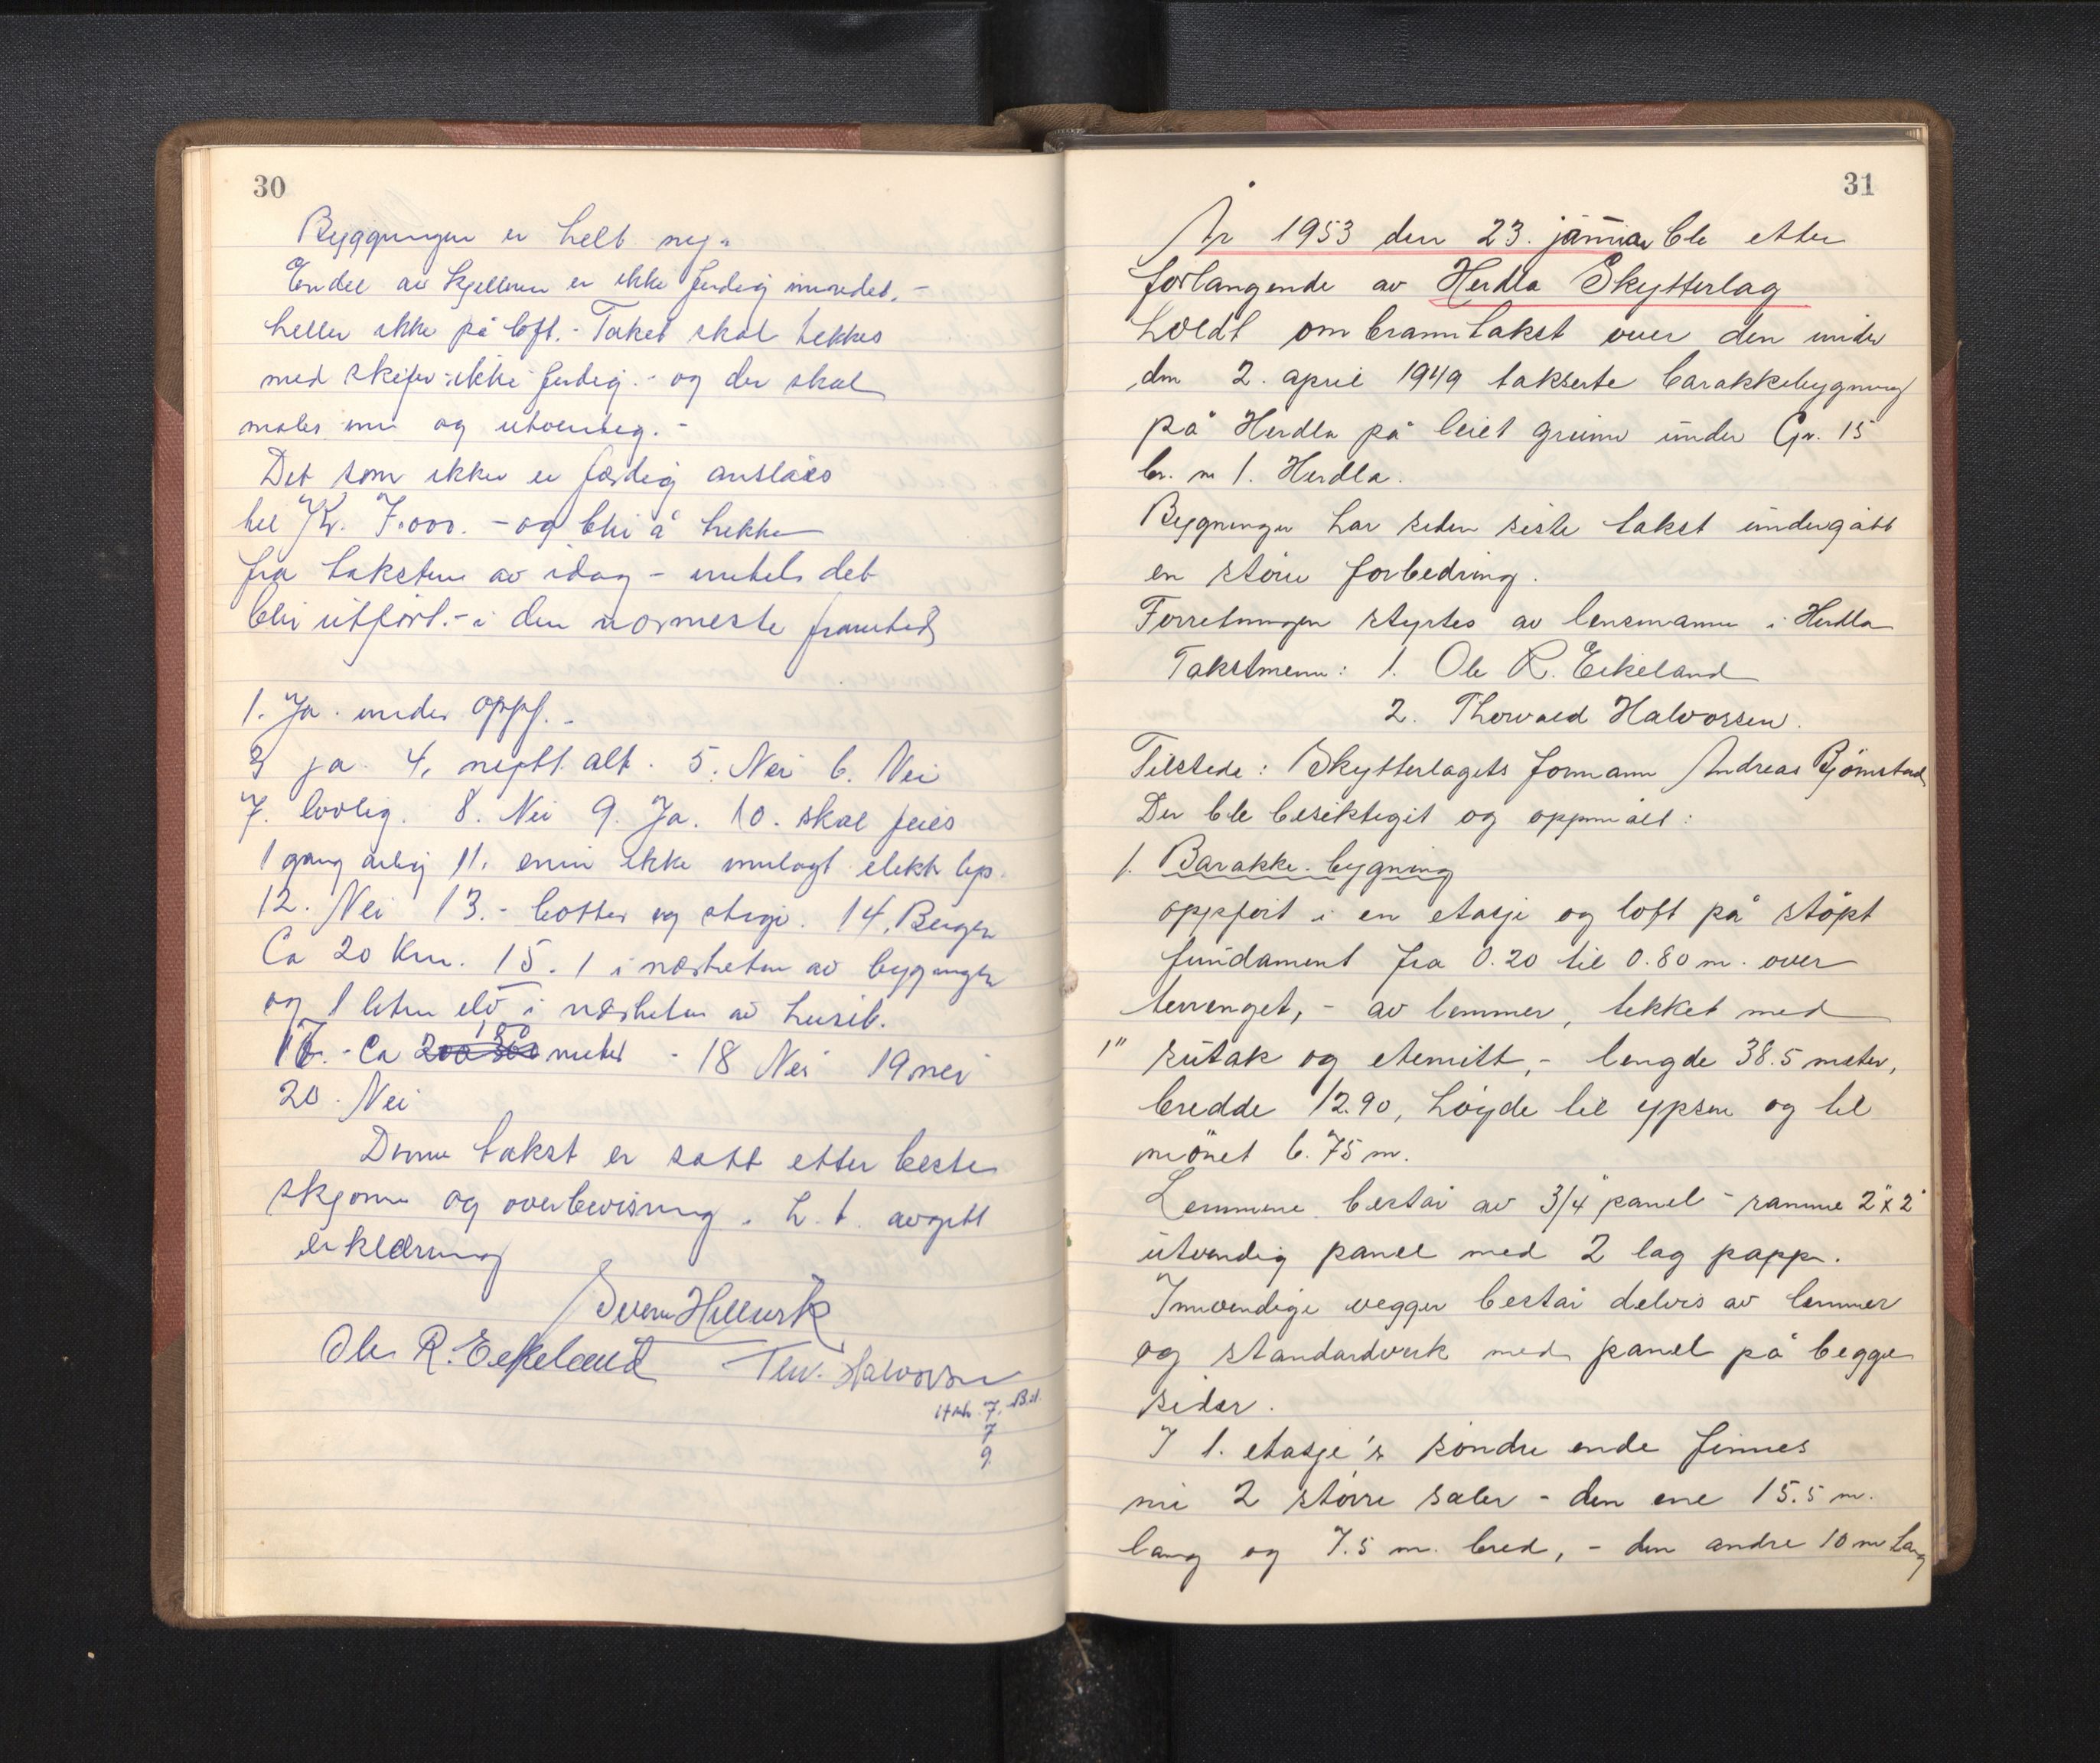 30
Byggningen er helt ny.
Endel av kjelleren er ikke ferdig innredet. -
heller ikke på loft. - Taket skal tekkes
med skifer - ikke ferdig. - og der skal
males inn og utvendig. -
Det som ikke er færdig anslåes
til Kr. 7.000. - og blir å trekke
fra taksten av idag - inntil det
blir utført. - i den nærmeste framtid
1. Ja. under oppf. -
3 ja. 4. alt. 5. Nei 6. Nei
7. lovlig. 8. Nei 9. Ja. 10. skal feies
1 gang årlig 11. ennu ikke innlagt elektr lys.
12. Nei 13. - bøtter og stige. 14. Bergen
Ca 20 km. 15. 1 i nærheten av bygningen
og 1 liten elv i nærheten av huset.
17. - Ca 200 300 180 meter - 18 Nei 19 nei
20. Nei
Denne takst er satt etter beste
skjønn og overbevisning. h. t. avgitt
erklæring
Ole R. Eikeland Thv. Halvorsen
7.
7
9
31
År 1953 den 23. januar ble etter
forlangende av Herdla Skytterlag
holdt om branntakst over den under
den 2. april 1949 takserte barakkebygning
på Herdla på leiet grunn under Gr. 15
br. nr 1. Herdla.
Bygningen har siden siste takst undergått
en større forbedring.
Forretningen styrtes av lensmannen i Herdla
Takstmenn: 1. Ole R. Eikeland
2. Thorvald Halvorsen.
Tilstede: Skytterlagets formann Andreas Bjørnstad
Der ble besiktiget og oppmålt:
1. Barakke-bygning
oppført i en etasje og loft på støpt
fundament fra 0.20 til 0.80 m. over
terrenget, - av lemmer, tekket med
1" sutak og eternitt, - lengde 38.5 meter,
bredde 12.90, høyde til ypsen og til
mønet 6.75 m.
Lemmene består av 3/4" panel - ramme 2"x2"
utvendig panel med 2 lag papp.
Innvendige vegger består delvis av lemmer
og standardverk med panel på begge
sider.
I 1. etasje's søndre ende finnes
nu 2 større saler - den ene 15.5 m.
lang og 7.5 m. bred, - den andre 10 m lang